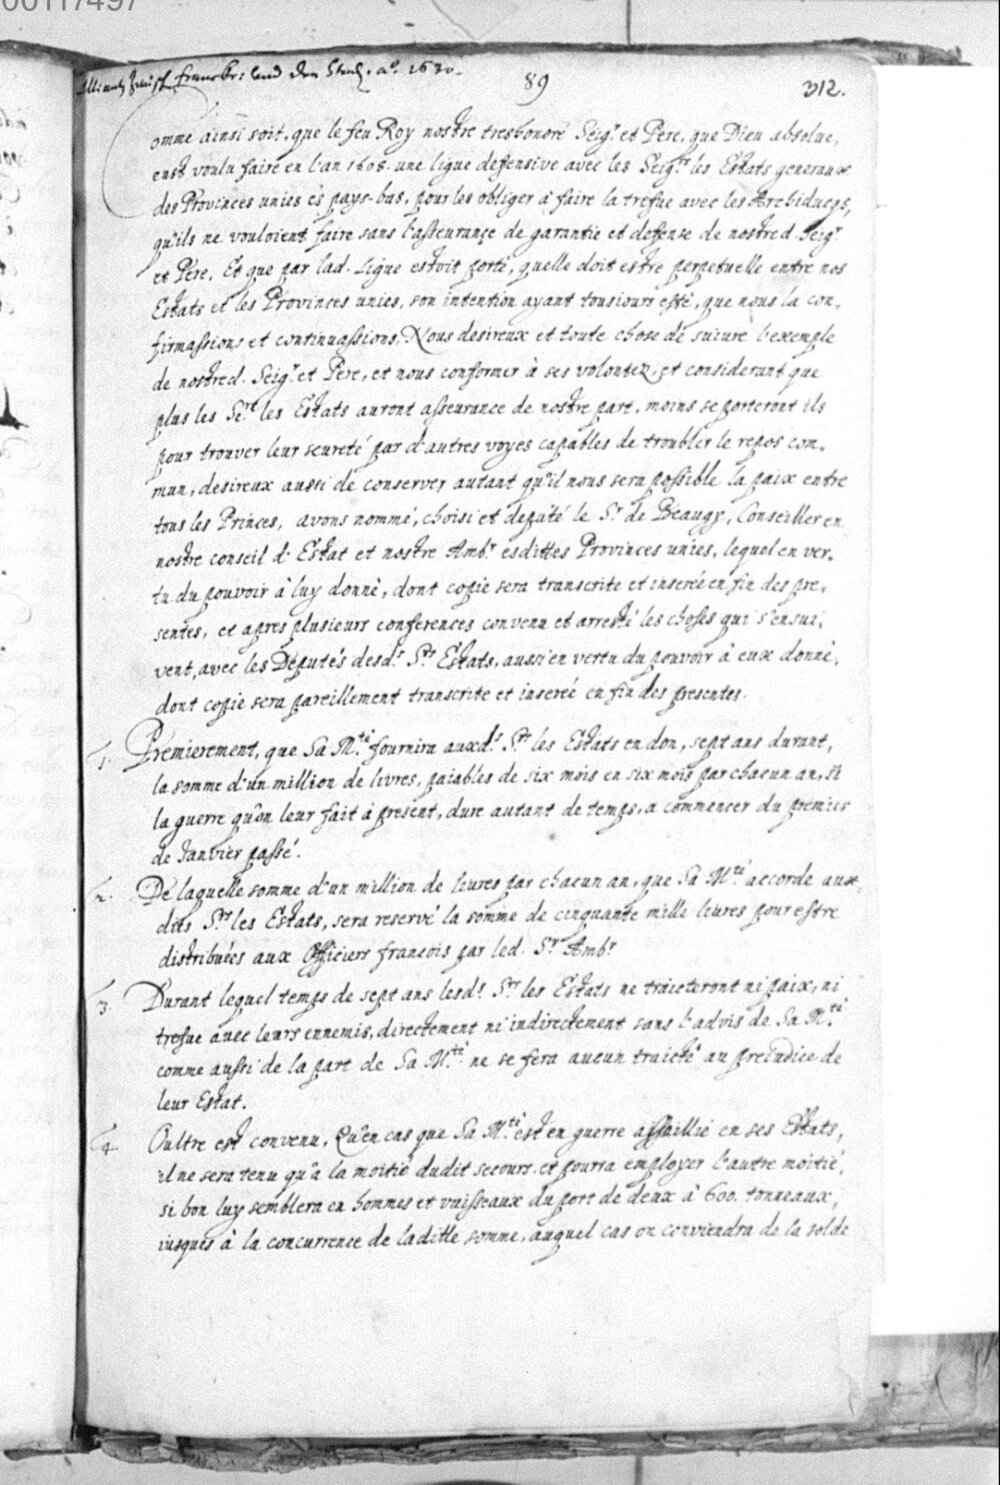 00117497
Alliantz zwisch. Franckr: und den Stad. aº. 1630.
89
312.
Comme ainsi soit, que le feu Roy nostre treshonoré Seigr. et Pere, que Dieu absolve,
eust voulu faire en l'an 1608. une ligue defensive avec les Seigrs. les Estats generaux
des Provinces unies és pays-bas, pour les obliger à faire la trefue avec les Archiducqs,
qu'ils ne vouloient faire sans l'asseurançe de garantie et defense de nostred. Seigr.
et Pere, Et que par lad. Ligue estoit porté, quelle doit estre perpetuelle entre nos
Estats et les Provinces unies, son intention ayant tousiours esté, que nous la con,
firmassions et continuassions, Nous desireux et toute chose de suiure l'exemple
de nostred. Seigr. et Pere, et nous conformer à ses volontez, et considerant que
plus les Srs. les Estats auront asseurance de nostre part, moins se porteront ils
pour trouver leur seureté par d'autres voyes capables de troubler le repos com,
mun, desireux aussi de conserver autant qu'il nous sera possible la paix entre
tous les Princes, avons nommé, choisi et deputé le Sr. de Beaugy, Conseiller en
nostre conseil d'Estat et nostre Ambr. esdittes Provinces unies, lequel en ver,
tu du pouvoir à luy donné, dont copie sera transcrite et inserée en fin des pre,
sentes, et apres plusieurs conferences convenu et arresté les choses qui s'ensui,
vent, avec les Députés desds. Srs. Estats, aussi en vertu du pouvoir à eux donné,
dont copie sera pareillement transcrite et inserée en fin des presentes.
1. Premierement, que Sa Mté. fournira auxds. Srs. les Estats en don, sept ans durant,
la somme d'un million de livres, paiables de six mois en six mois par chacun an, si
la guerre qu'on leur fait à present, dure autant de temps, a commencer du premier
de Janvier passé.
2. De laquelle somme d'un million de livres par chacun an, que Sa Mté. accorde aux
dits Srs. les Estats, sera reservé la somme de cinquante mille livres pour estre
distribuées aux Officiers francois par led. Sr. Ambr.
3. Durant lequel temps de sept ans lesds. Srs. les Estats ne traicteront ni paix, ni
trefue avec leurs ennemis, directement ni indirectement sans l'advis de Sa Mté.
comme aussi de la part de Sa Mté. ne se fera aucun traicté au preiudice de
leur Estat.
4. Oultre est convenu, Qu'en cas que Sa Mté. est en guerre assaillie en ses Estats,
il ne sera tenu qu'a la moitié dudit secours et pourra employer l'autre moitié,
si bon luy semblera en hommes et vaisseaux du port de deux à 600. tonneaux,
iusques à la concurrence de laditte somme, auquel cas on conviendra de la solde